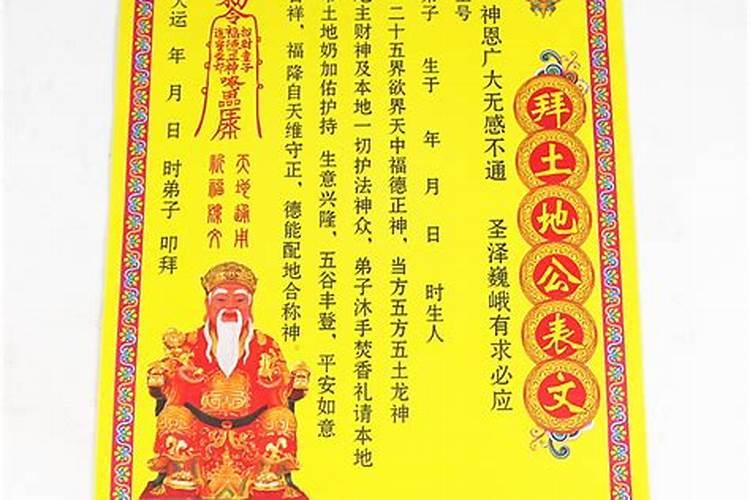 拜土地公表文
神恩广大无感不通 圣泽巍峨有求必应
弟子 生于 年 月 日 时生人
二十五界欲界天中福德正神，当方五方五土龙神
地主财神及本地一切护法神众，弟子沐手焚香礼请本地
土地奶加佑护持 生意兴隆，五谷丰登，平安如意
吉祥，福降自天维守正，德能配地合称神
敕令
招财童子
福德正神
天地通用
祈福陈文
天运 年 月 日 时弟子 叩拜